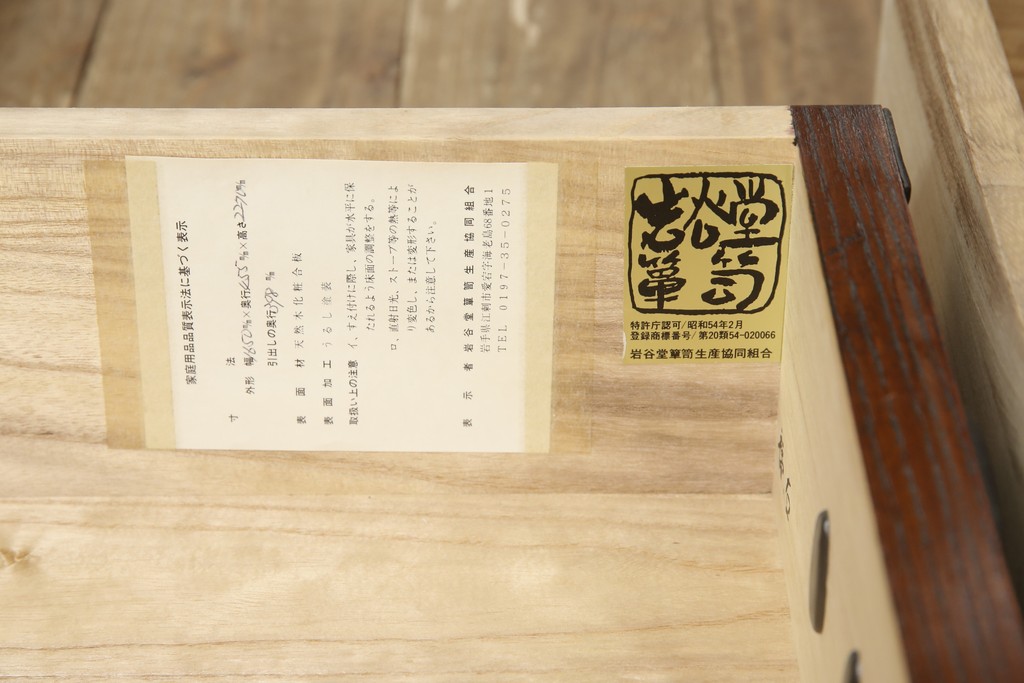 家庭用品品質表示法に基づく表示
寸法
外形 幅650㎜×奥行255㎜×高さ227㎜
引出しの奥行198㎜
表面材 天然木化粧合板
表面加工 うるし塗装
取扱い上の注意 イ、すえ付けに際し、家具が水平に保
たれるよう床面の調整をする。
ロ、直射日光、ストーブ等の熱等によ
り変色し、または変形することが
あるから注意して下さい。
表示者 岩谷堂簞笥生産協同組合
岩手県江刺市愛宕字海老島68番地1
TEL 0197-35-0275
岩谷堂
簞笥
特許庁認可/昭和54年2月
登録商標番号/第20類54-020066
岩谷堂簞笥生産協同組合